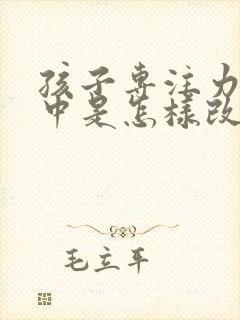 孩子专注力
中是怎样改
毛立平